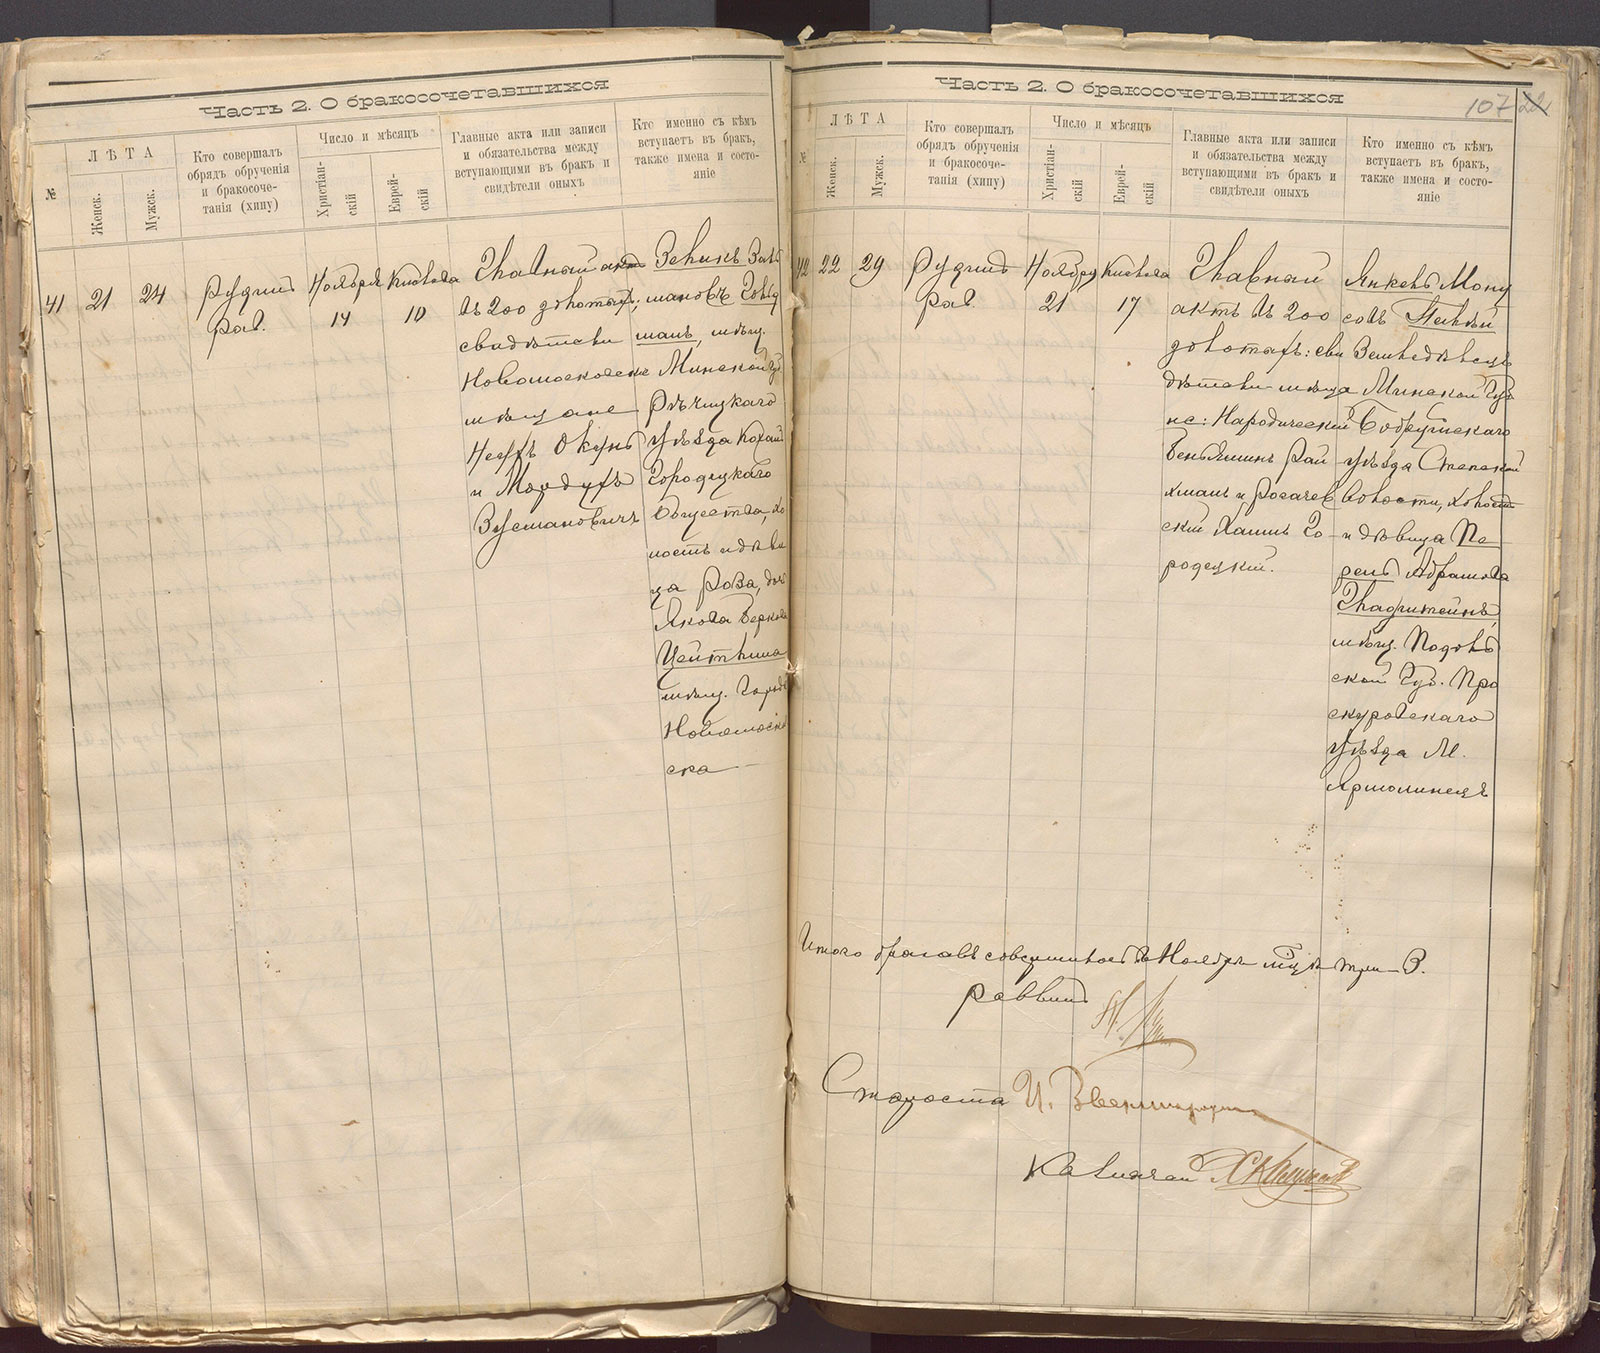 Часть 2. О бракосочетавшихся
№
ЛѢТА
Женск.
Мужск.
Кто совершалъ
обрядъ обрученія
и бракосоче-
танія (хипу)
Число и мѣсяцъ
Христіан-
скій
Еврей-
скій
Главные акта или записи
и обязательства между
вступающими въ бракъ и
свидѣтели оныхъ
Кто именно съ кѣмъ
вступаетъ въ бракъ,
также имена и состо-
яніе
41
21
24
Рудинъ
рав.
Ноября
14
Кислева
10
Главный актъ
въ 200 злотыхъ;
свидѣтели
Новомосковскіе
мѣщане
Окунь
и Мордухъ
Зусмановичъ
Зеликъ Зал
мановъ
манъ, мѣщ.
Минской Гу
Рѣчицкаго
уѣзда
Городецкаго
Общества, хо
лостъ и дѣви
ца Роза, дочь
Якова Беркова
Цейтлина
мѣщ. города
Новомосков
ска
Часть 2. О бракосочетавшихся
107
№
ЛѢТА
Женск.
Мужск.
Кто совершалъ
обрядъ обрученія
и бракосоче-
танія (хипу)
Число и мѣсяцъ
Христіан-
скій
Еврей-
скій
Главные акта или записи
и обязательства между
вступающими въ бракъ и
свидѣтели оныхъ
Кто именно съ кѣмъ
вступаетъ въ бракъ,
также имена и состо-
яніе
42
22
29
Рудинъ
рав.
Ноября
21
Кислева
17
Главный
актъ въ 200
злотыхъ: сви
дѣтели мѣща
не: Народическій
Беньяминъ Рай
хманъ и Рогачев
скій Хаимъ Го
родецкій.
Янкель
Минской Губ
Бобруйскаго
уѣзда
волости, холостъ
и дѣвица Пе
рель Абрамова
Гладштейнъ,
мѣщ. Подоль
ской Губ. Про
скуровскаго
уѣзда М.
Ярмолинецъ
Итого браковъ совершилось въ Ноябрѣ м-цѣ три 3.
Раввинъ
Староста И.
Казначей